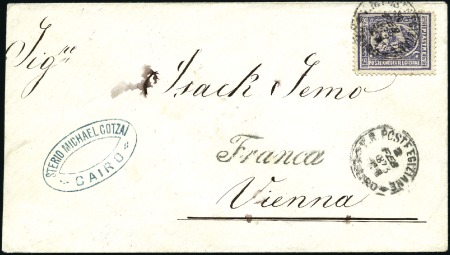 Sigr
Isack Semo
Franca
Vienna
STERIO MICHAEL COTZAI
CAIRO
POSTE EGIZIANE